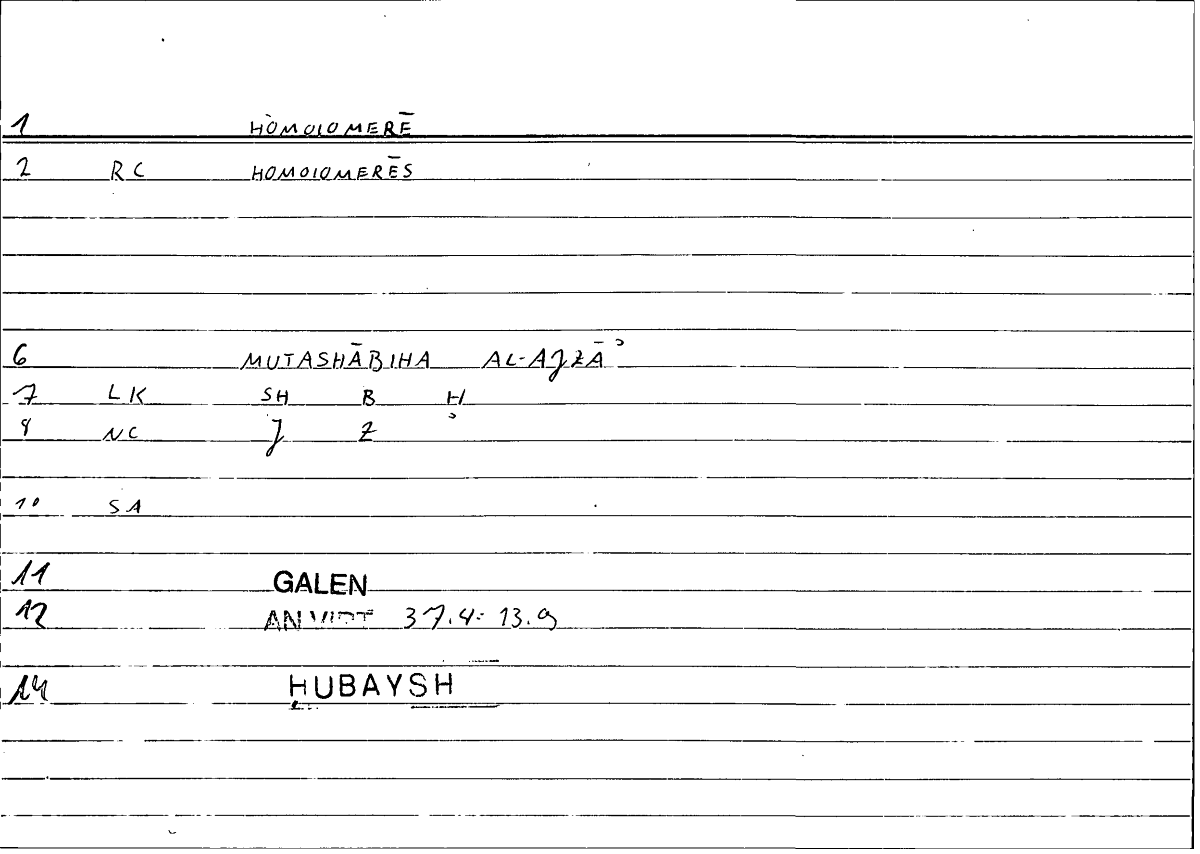 1 HOMOIOMERĒ
2 RC HOMOIOMERĒS
6 MUTASHĀBIHA AL-AJZĀʾ
7 LK SH B H
8 NC J Z ʾ
10 SA
11 GALEN
12 AN VIRT 37.4-13.9
14 ḤUBAYSH